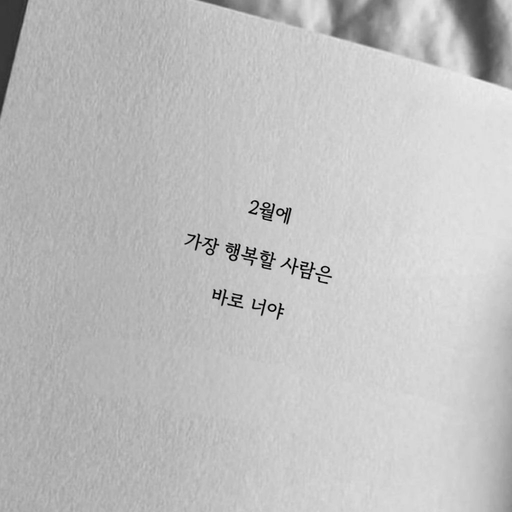 2월에
가장 행복할 사람은
바로 너야